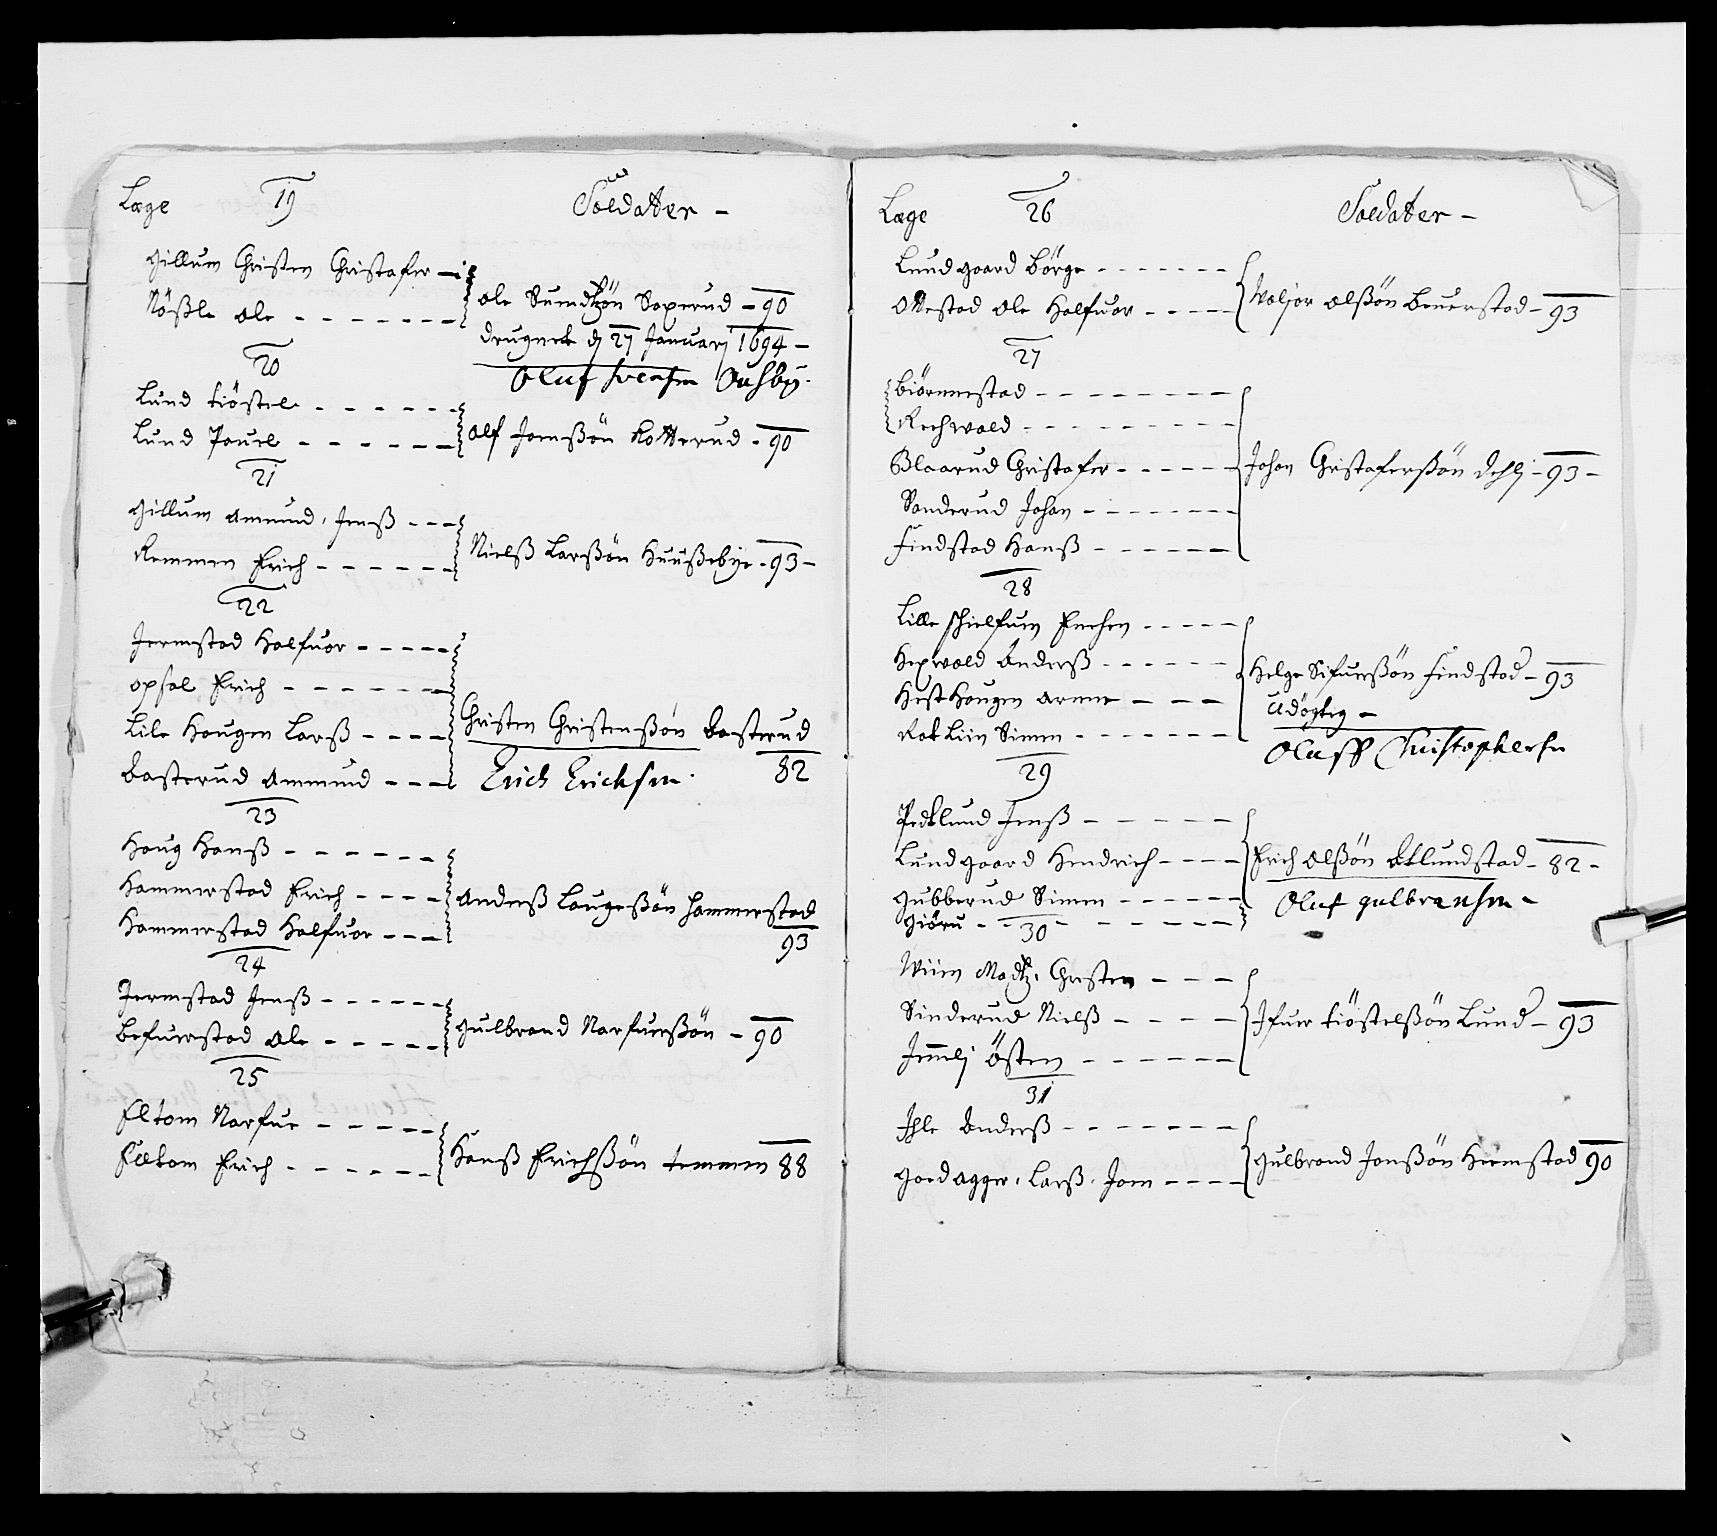 Læge 19 Soldater -
Gillum Christen Christafer -
Nößle ole - - - - - - -
ole Simdtzön Soperud - 90
drugnet dj 27 Januarj 1694 -
Oluf Svensen Ousby.
20
Lund Tiöstel - - - - - -
Lund Pouel - - - - - -
olf Jonßön Kotterud - 90
21
Gillum Amund, Jenß - - -
Remmen Erich - - - - - -
Nielß Larßön Huußebye - 93 -
22
Jermstad Halfuor - - - - -
opsal Erich - - - - - -
Lile Hougen Larß - - - -
Basterud Ammund - - -
Christen Christenßön Basterud
82
Erich Erichsen.
23
Houg Hanß - - - - - -
Hammerstad Erich - - - -
Hammerstad Halfuor - - -
Anderß Laugeßön Hammerstad
93
24
Jermstad Jenß - - - - - -
Befuerstad Ole - - - - -
Gulbrand Narfuerßön - 90
25
Eltom Narfue - - - - -
Eltom Erich - - - - - -
Hanß Erichßön Temmen 88
Læge 26 Soldater -
Lundgaard Börge - - - - - - -
Ottestad Ole Halfuor - - - -
Woljor Olßön Beuerstad - 93
27
Biörnnestad - - - - - - -
Rechwald - - - - - - - -
Blaarud Christafer - - - - -
Sanderud Johan - - - - - -
Findstad Hanß - - - - - -
Johan Christaferßön Dehlj - 93 -
28
Lille schielfum Enchen - - - - -
Hexwald Anderß - - - - - -
Hust Hougen Arnne - - -
Rotliin Simen - - - - - - -
Helge Sifuerßön Findstad - 93
Udögtig -
Oluff Christophersn
29
Pedtlund Jenß - - - - - -
Lundgaard Hendrich - - - -
Gubberud Simen - - - - -
Giöru - - - - - - - -
Erich Olßön Utlundstad - 82 -
Oluf gulbransen -
30
Wiien Madtz, Christen - - -
Sinderud Nielß - - - -
Jmelj Östen - - - - - -
Ifuer Tiöstelßön Lund - 93
31
Ihle Anderß - - - - - - -
Goed agger, Larß, Jon - - - -
Gulbrand Jonßön Hiermstad 90